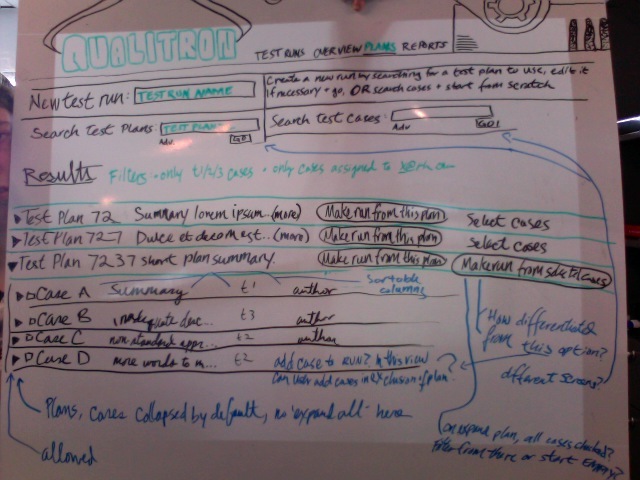 QUALITRON
TEST RUNS OVERVIEW PLANS REPORTS
New test run: TEST RUN NAME
Create a new run by searching for a test plan to use, edit it
if necessary + go, OR search cases + start from scratch
Search Test Plans: TEST PLAN
Adv GO!
Search test cases:
Adv GO!
Results Filters · only t1/2/3 cases · only cases assigned to
Test Plan 72 Summary lorem ipsum... (more) Make run from this plan Select cases
Test Plan 727 Dulce et decorum est... (more) Make run from this plan Select cases
Test Plan 7237 short plan summary. Make run from this plan Make run from selected cases
Sortable
columns
Case A Summary t1 author
Case B inadequate desc... t3 author
Case C non standard appr... t2 author
Case D more words to m... t2 add case to RUN? in this view
can user add cases in exclusion of plan?
How differentiated
from this option?
different screens?
Plans, cases collapsed by default, no "expand all" here
allowed
on expand plan, all cases checked?
Filter from there or start EMPTY?